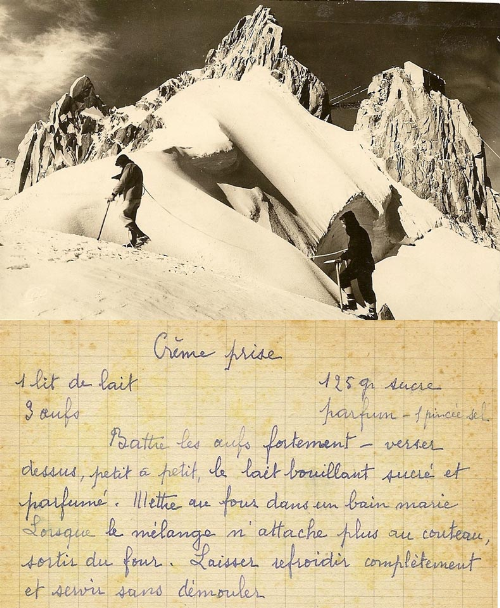 Crème prise
1 lit de lait 125 gr sucre
3 œufs parfum - 1 pincée sel
Battre les œufs fortement - verser
dessus, petit à petit, le lait bouillant sucré et
parfumé. Mettre au four dans un bain marie
Lorsque le mélange n'attache plus au couteau,
sortir du four. Laisser refroidir complètement
et servir sans démouler